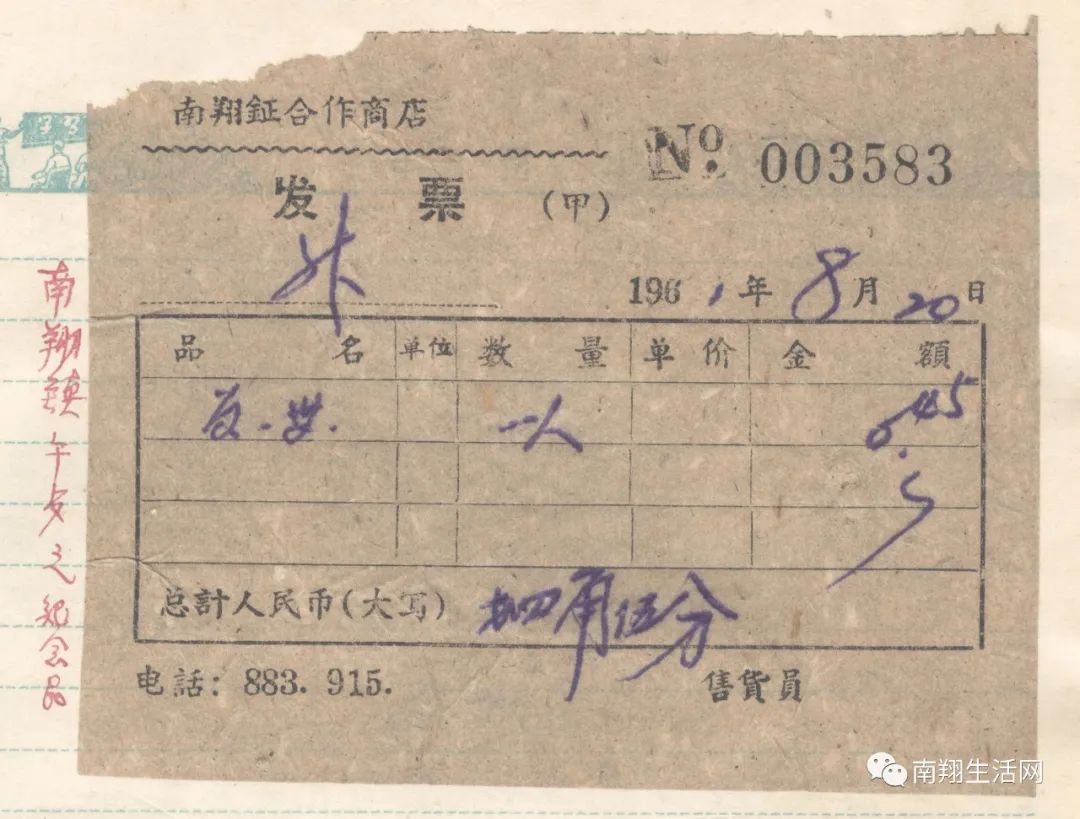 南翔鉦合作商店
No 003583
发 票 (甲)
1961年8月20日
品 名 单位 数 量 单 价 金 額
一人 0.45
总計人民币(大写) 四角伍分
电話: 883. 915. 售貨員
南翔鎮午安之紀念品
南翔生活网